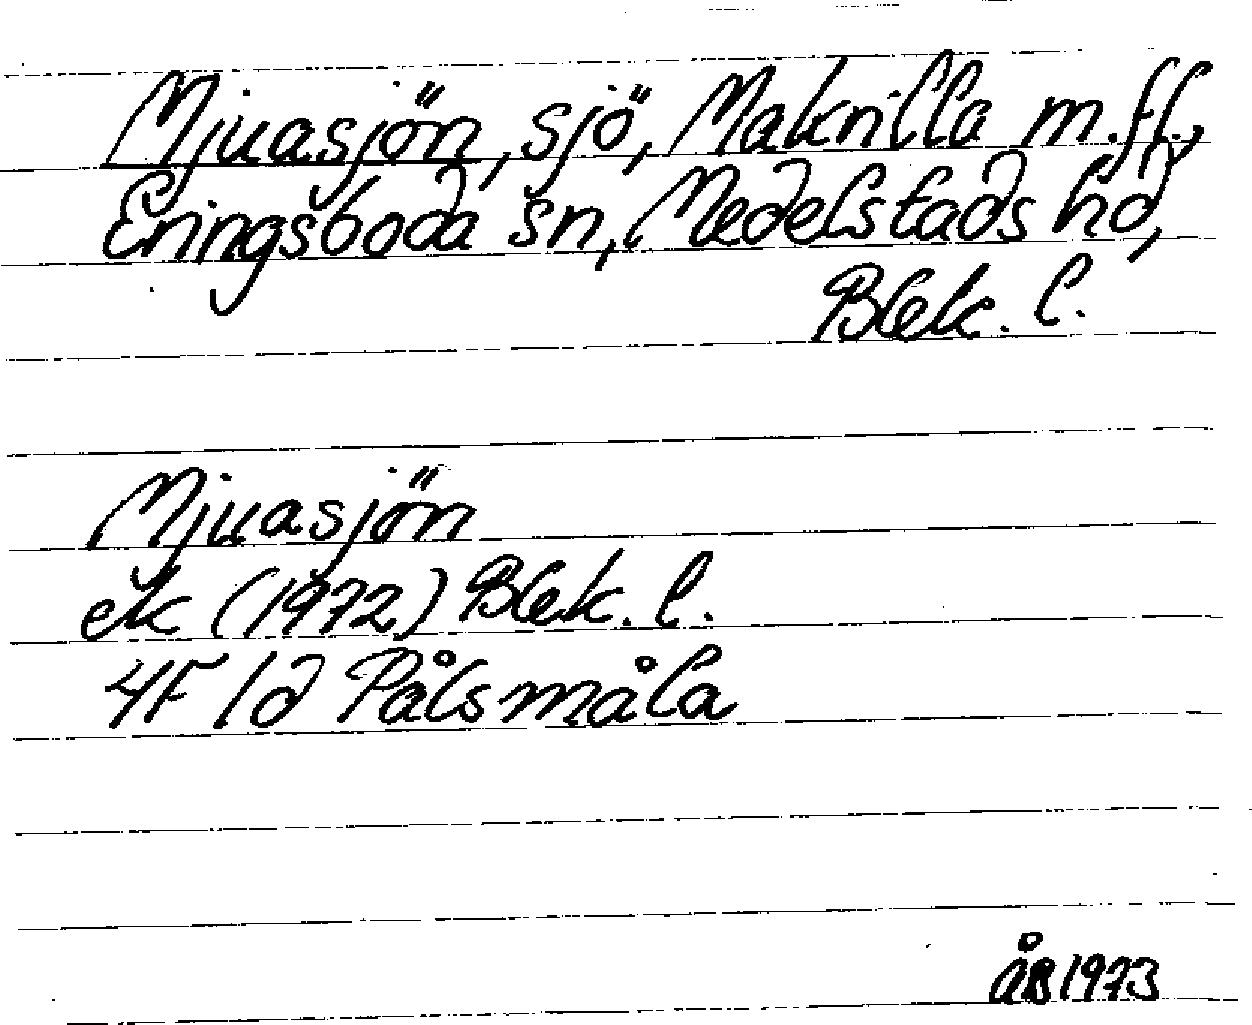 Mjuasjön, sjö, Makrilla m.fl.,
Eringsboda sn, Medelstads hd,
Blek. l.
Mjuasjön
ek (1972) Blek. l.
4F 1d Pålsmåla
ÅB 1973